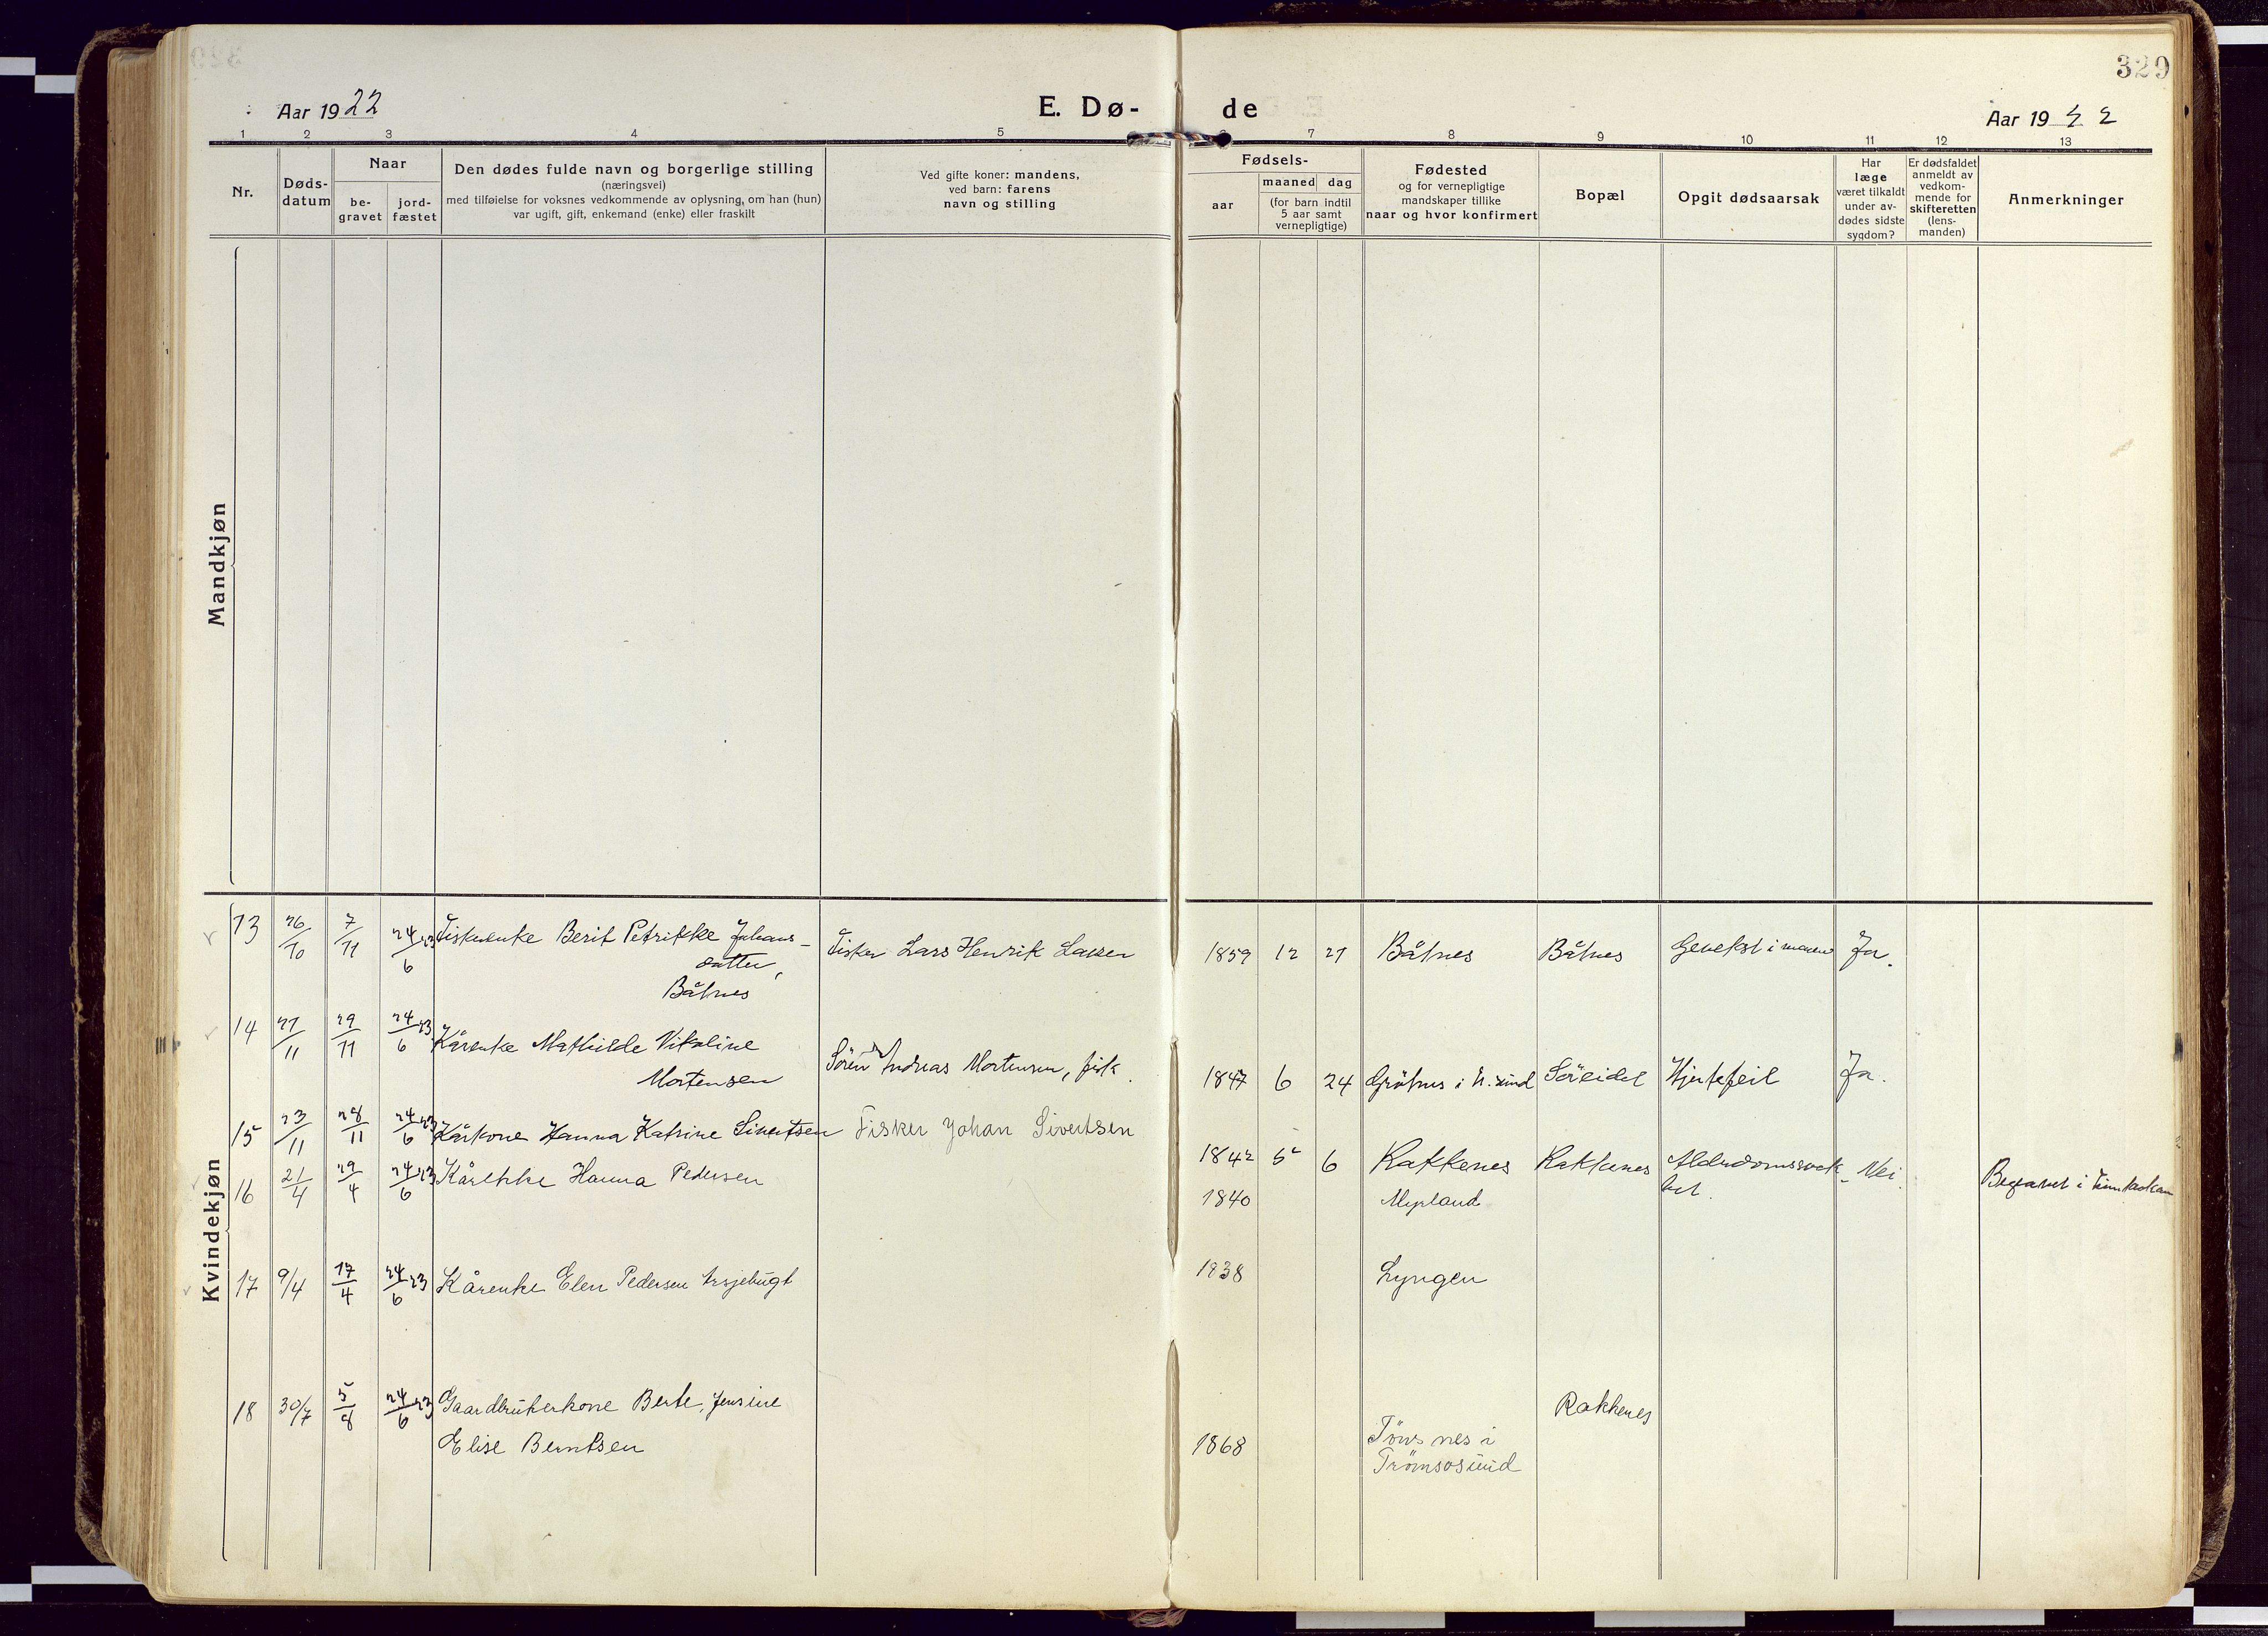 329
Aar 1922
E. Dø-
de
Aar 1922
1 2 3 4 5 7 8 9 10 11 12 13
Nr.
Døds-
datum
Naar
be-
gravet
jord-
fæstet
Den dødes fulde navn og borgerlige stilling
(næringsvei)
med tilføielse for voksnes vedkommende av oplysning, om han (hun)
var ugift, gift, enkemand (enke) eller fraskilt
Ved gifte koner: mandens,
ved barn: farens
navn og stilling
Fødsels-
aar
maaned dag
(for barn indtil
5 aar samt
vernepligtige)
Fødested
og for vernepligtige
mandskaper tillike
naar og hvor konfirmert
Bopæl
Opgit dødsaarsak
Har
læge
været tilkaldt
under av-
dødes sidste
sygdom?
Er dødsfaldet
anmeldt av
vedkom-
mende for
skifteretten
(lens-
manden)
Anmerkninger
Mandkjøn
Kvindekjøn
13 26/10 7/11 24/6 23 Fiskerenke Berit Petrikke Johans-
datter,
Båtnes
Fisker Lars Henrik Larsen 1859 12 27 Båtnes Båtnes Gevekst i maven Ja.
14 /11 29/11 24/6 23 Kårenke Mathilde Vikoline
Mortensen
Sören Andreas Mortensen, fisk. 1847 6 24 Grötnes i H. sund Söreidet Hjertefeil Ja.
15 23/11 28/11 24/6 23 Kårkone Hanna Katrine Sivertsen Fisker Johan Sivertsen 1842 5 6 Rakkenes Rakkenes Alderdomssvak-
het. Nei
16 21/4 29/4 24/6 23 Kårenke Hanna Pedersen 1840 Myrland Begravet i
17 9/4 17/4 24/6 23 Kårenke Elen Pedersen 1838 Lyngen
18 30/7 5/8 24/6 23 Gaardbrukerkone Berte, Jensine
Elise Berntsen
1868 Tönsnes i
Tromsøsund
Rakkenes